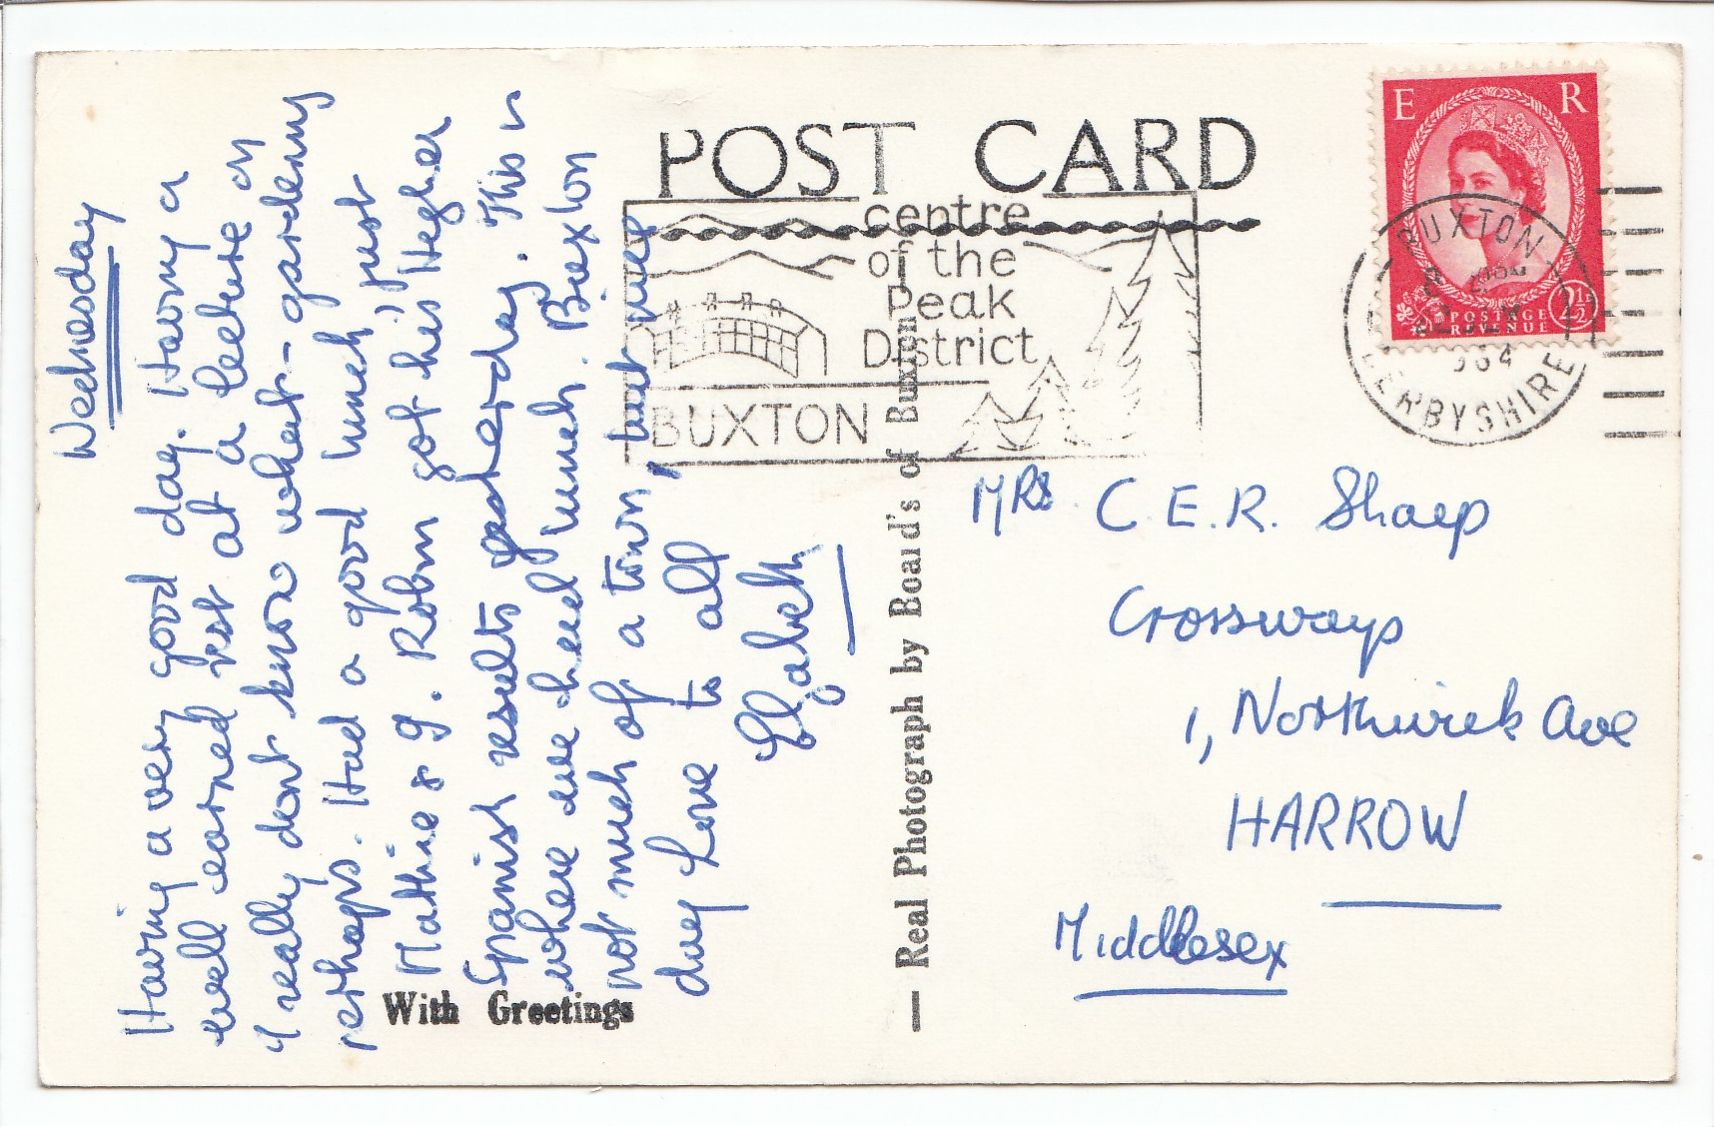 POST CARD
centre
of the
Peak
District
BUXTON
E R
POSTAGE
REVENUE
2½
BUXTON
DERBYSHIRE
Wednesday
Having a very good day. Having a
well earned rest at a lecture on
I really dont know what - gardening
perhaps. Had a good lunch, just
& I. Robin got his Higher
Spanish results yesterday. This is
where we had lunch. Buxton
not much of a town, but nice
Love to all
With Greetings
— Real Photograph by Board's of Buxton
Mrs. C. E. R. Sharp
Crossways
1, Northwick Ave
HARROW
Middlesex